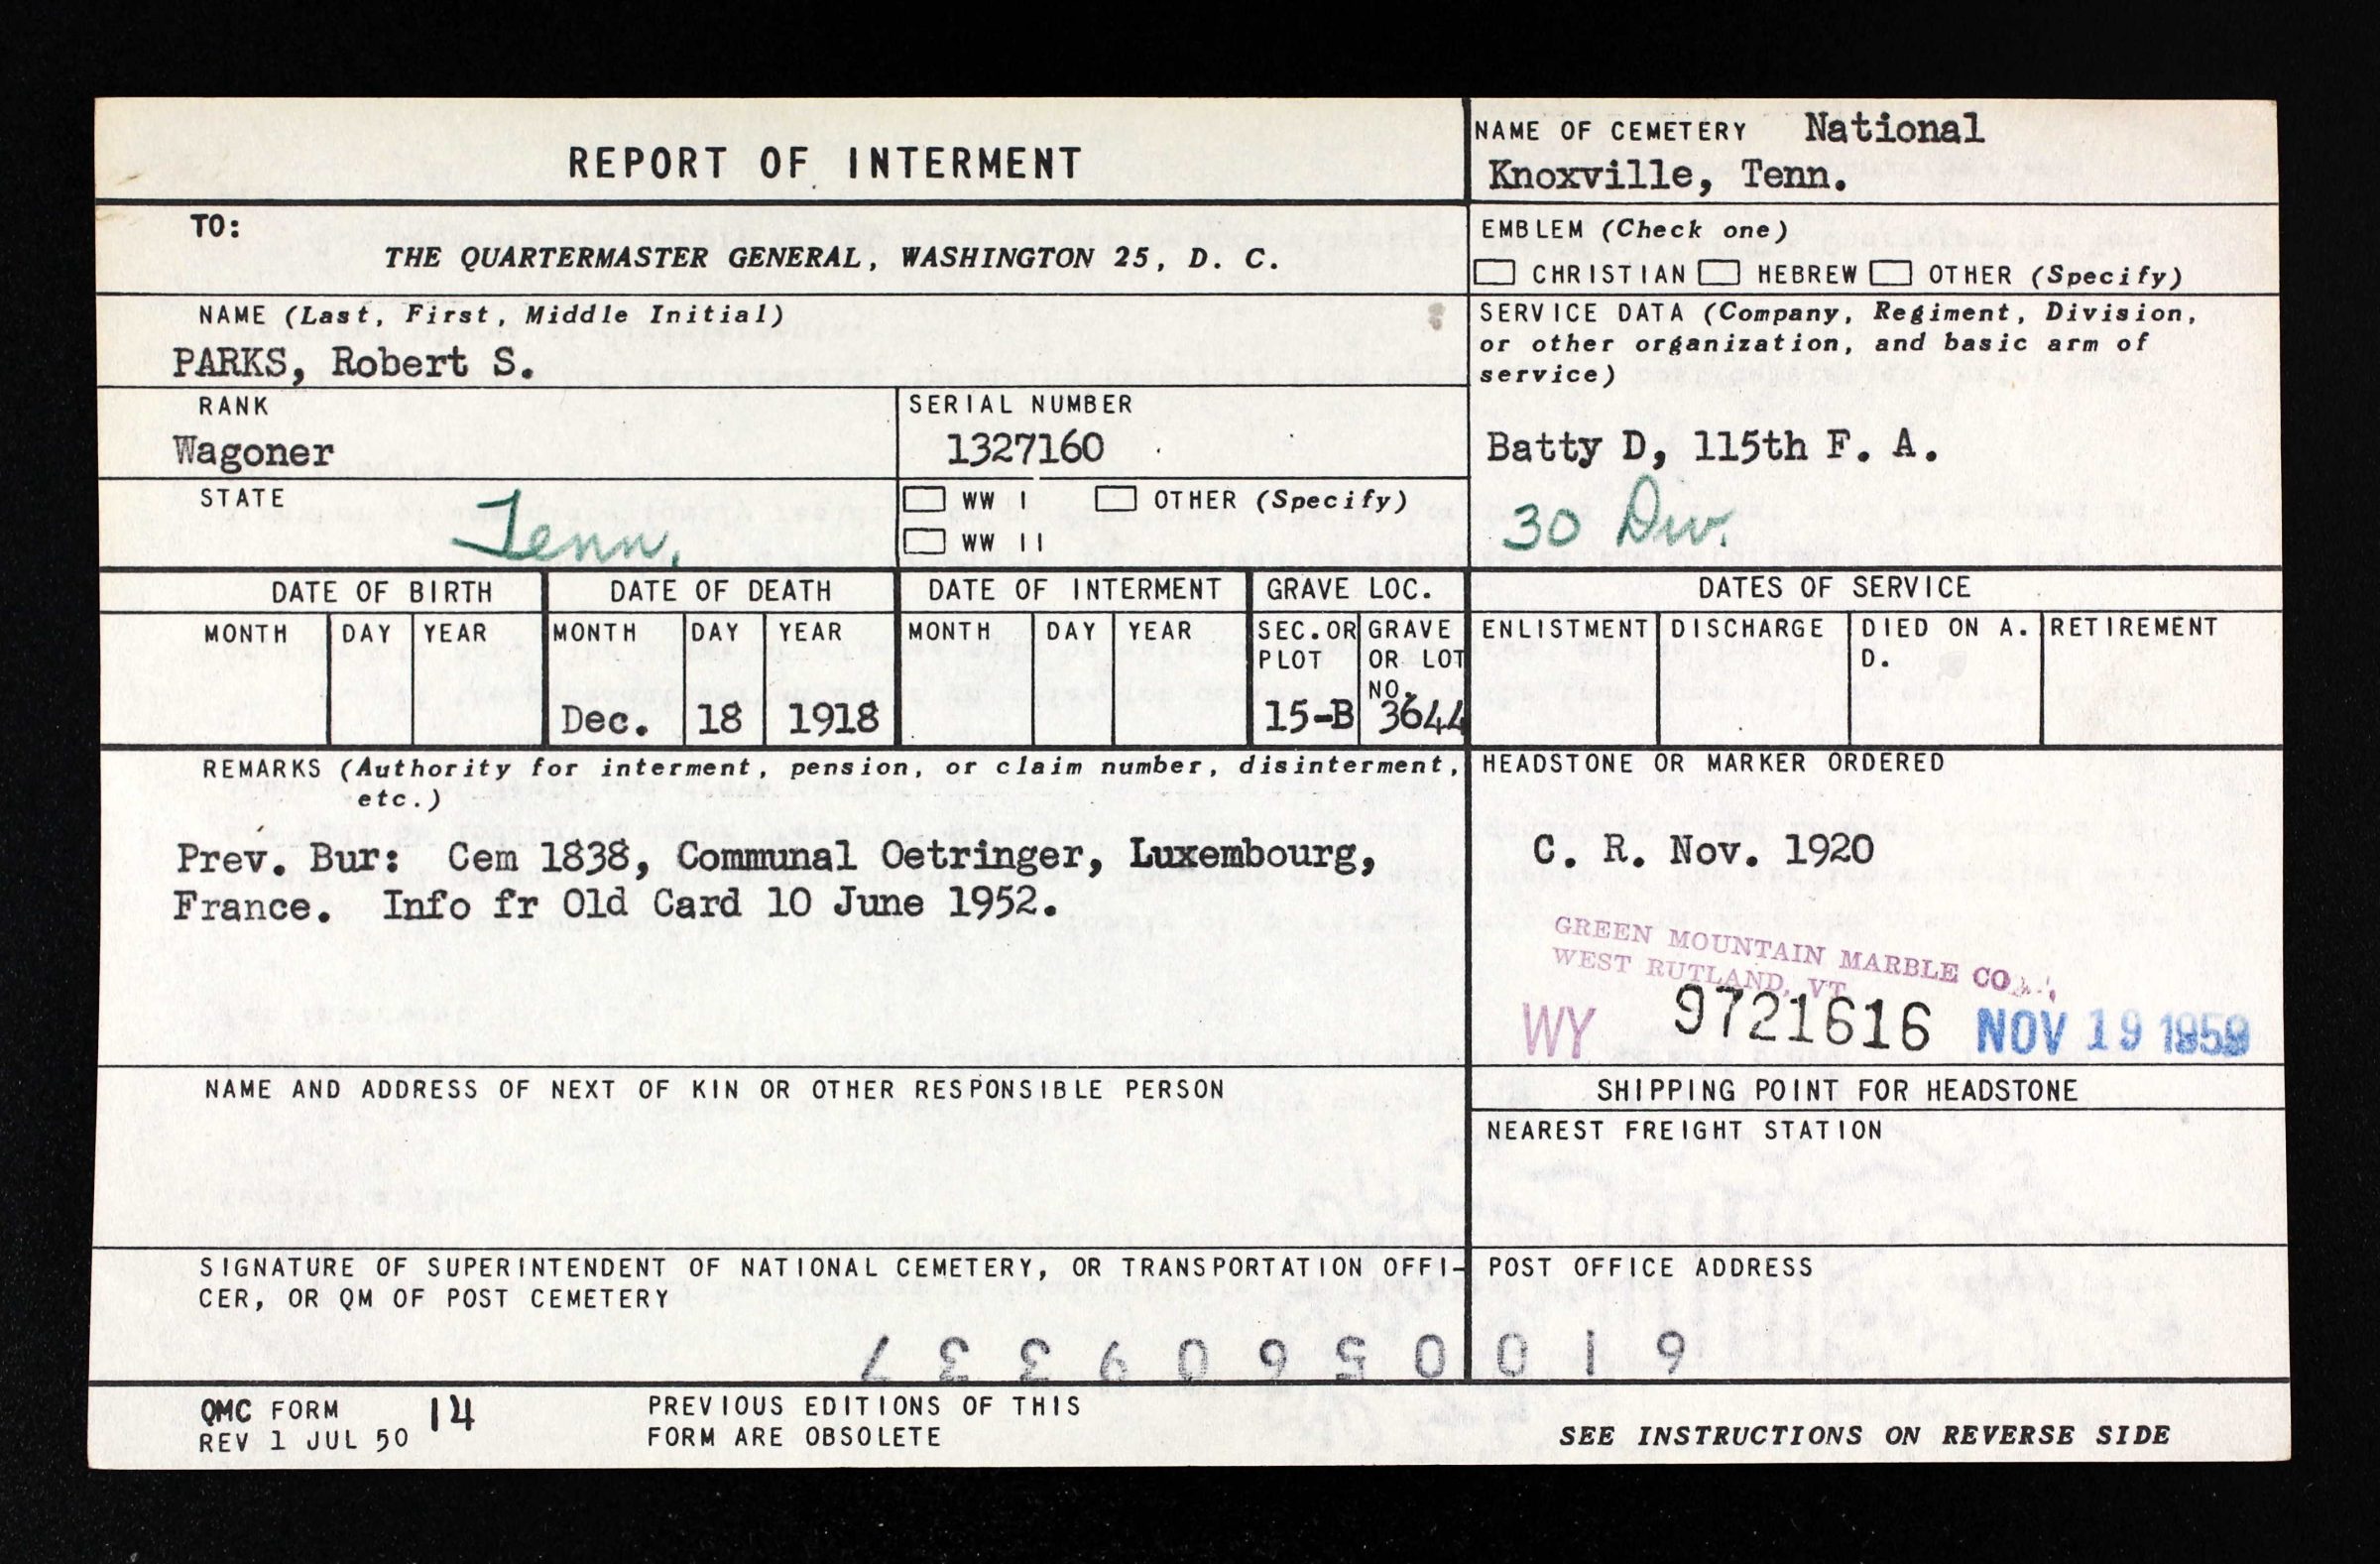 REPORT OF INTERMENT
NAME OF CEMETERY National
Knoxville, Tenn.
TO:
THE QUARTERMASTER GENERAL, WASHINGTON 25, D. C.
EMBLEM (Check one)
CHRISTIAN HEBREW OTHER (Specify)
NAME (Last, First, Middle Initial)
PARKS, Robert S.
SERVICE DATA (Company, Regiment, Division,
or other organization, and basic arm of
service)
RANK
Wagoner
SERIAL NUMBER
1327160
Batty D, 115th F. A.
STATE
Tenn.
WW I OTHER (Specify)
WW II
30 Div.
DATE OF BIRTH DATE OF DEATH DATE OF INTERMENT GRAVE LOC. DATES OF SERVICE
MONTH DAY YEAR MONTH DAY YEAR MONTH DAY YEAR SEC. OR GRAVE ENLISTMENT DISCHARGE DIED ON A. RETIREMENT
PLOT OR LOT D.
NO.
Dec. 18 1918 15-B 3644
REMARKS (Authority for interment, pension, or claim number, disinterment,
etc.)
Prev. Bur: Cem 1838, Communal Oetringer, Luxembourg,
France. Info fr Old Card 10 June 1952.
HEADSTONE OR MARKER ORDERED
C. R. Nov. 1920
GREEN MOUNTAIN MARBLE CO
WEST RUTLAND, VT
WY 9721616 NOV 19 1959
NAME AND ADDRESS OF NEXT OF KIN OR OTHER RESPONSIBLE PERSON
SHIPPING POINT FOR HEADSTONE
NEAREST FREIGHT STATION
SIGNATURE OF SUPERINTENDENT OF NATIONAL CEMETERY, OR TRANSPORTATION OFFI-
CER, OR QM OF POST CEMETERY
POST OFFICE ADDRESS
QMC FORM 14
REV 1 JUL 50
PREVIOUS EDITIONS OF THIS
FORM ARE OBSOLETE
SEE INSTRUCTIONS ON REVERSE SIDE